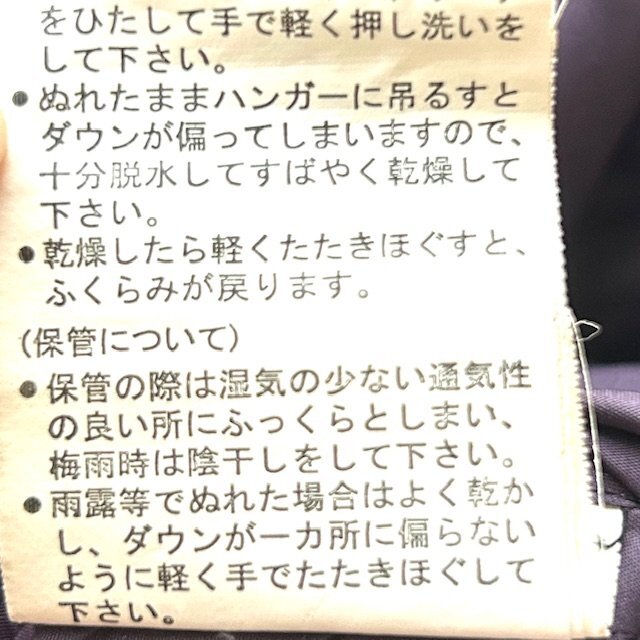 をひたして手で軽く押し洗いを
して下さい。
●ぬれたままハンガーに吊るすと
ダウンが偏ってしまいますので、
十分脱水してすばやく乾燥して
下さい。
●乾燥したら軽くたたきほぐすと、
ふくらみが戻ります。
(保管について)
●保管の際は湿気の少ない通気性
の良い所にふっくらとしまい、
梅雨時は陰干しをして下さい。
●雨露等でぬれた場合はよく乾か
し、ダウンが一カ所に偏らない
ように軽く手でたたきほぐして
下さい。